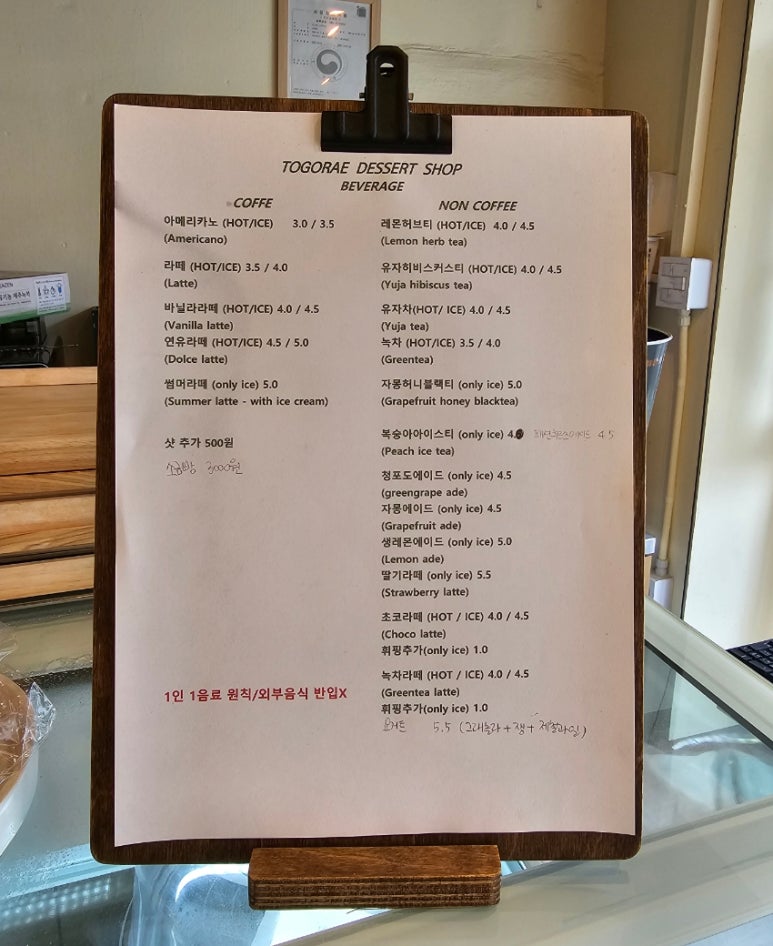 TOGORAE DESSERT SHOP
BEVERAGE
COFFE
아메리카노 (HOT/ICE) 3.0 / 3.5
(Americano)
라떼 (HOT/ICE) 3.5 / 4.0
(Latte)
바닐라라떼 (HOT/ICE) 4.0 / 4.5
(Vanilla latte)
연유라떼 (HOT/ICE) 4.5 / 5.0
(Dolce latte)
썸머라떼 (only ice) 5.0
(Summer latte - with ice cream)
샷 추가 500원
소금빵 3000원
1인 1음료 원칙/외부음식 반입X
NON COFFEE
레몬허브티 (HOT/ICE) 4.0 / 4.5
(Lemon herb tea)
유자히비스커스티 (HOT/ICE) 4.0 / 4.5
(Yuja hibiscus tea)
유자차(HOT/ ICE) 4.0 / 4.5
(Yuja tea)
녹차 (HOT/ICE) 3.5 / 4.0
(Greentea)
자몽허니블랙티 (only ice) 5.0
(Grapefruit honey blacktea)
복숭아아이스티 (only ice) 4.0 4.5
(Peach ice tea)
청포도에이드 (only ice) 4.5
(greengrape ade)
자몽에이드 (only ice) 4.5
(Grapefruit ade)
생레몬에이드 (only ice) 5.0
(Lemon ade)
딸기라떼 (only ice) 5.5
(Strawberry latte)
초코라떼 (HOT / ICE) 4.0 / 4.5
(Choco latte)
휘핑추가(only ice) 1.0
녹차라떼 (HOT / ICE) 4.0 / 4.5
(Greentea latte)
휘핑추가(only ice) 1.0
요거트 5.5 (그래놀라 + 잼 + 제철과일)